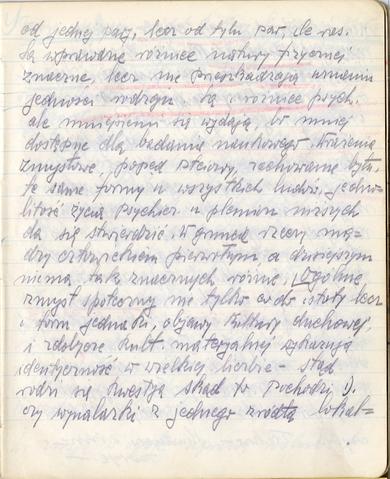 od jednej pary, lecz od tylu par, ile ras.
Są wprawdzie różnice natury fizycznej
znaczne, lecz nie przeszkadzają uznaniu
jedności rodzaju. Są i różnice psych.
ale mniejszemi się wydają, bo mniej
dostępne dla badania naukowego. Wrażenia
zmysłowe, popęd płciowy, zachowanie bytu,
te same formy u wszystkich ludów. Jedno-
litość życia psychicz. u plemion niższych
da się stwierdzić. W gruncie rzeczy mię-
dzy człowiekiem pierwotnym, a dzisiejszym
niema tak znacznych różnic. Ogólnie
zmysł społeczny nie tylko co do istoty lecz
i form jednaki, objawy kultury duchowej,
i zdobycze kult. materjalnej wykazują
identyczność w wielkiej liczbie - stąd
rodzi się kwestja skąd to pochodzi 1).
czy wynalazki z jednego źródła lokal-